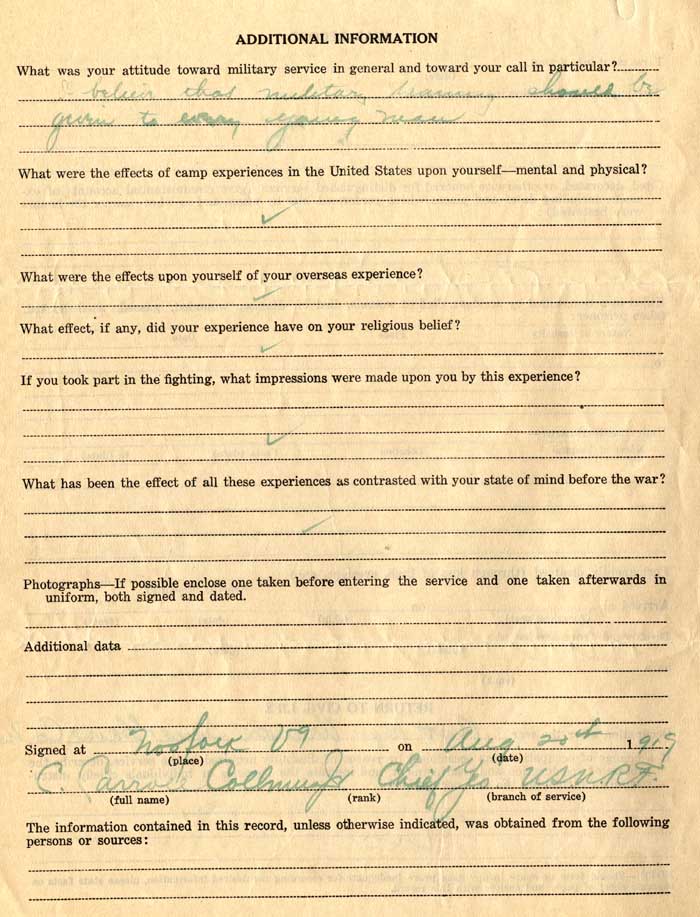 ADDITIONAL INFORMATION
What was your attitude toward military service in general and toward your call in particular?
I believe that military training should be
given to every young man
What were the effects of camp experiences in the United States upon yourself—mental and physical?
✓
What were the effects upon yourself of your overseas experience?
✓
What effect, if any, did your experience have on your religious belief?
✓
If you took part in the fighting, what impressions were made upon you by this experience?
✓
What has been the effect of all these experiences as contrasted with your state of mind before the war?
✓
Photographs—If possible enclose one taken before entering the service and one taken afterwards in
uniform, both signed and dated.
Additional data
Signed at Norfolk Va on Aug 20th 1919
(place) (date)
C. Chief Yeo USNRF.
(full name) (rank) (branch of service)
The information contained in this record, unless otherwise indicated, was obtained from the following
persons or sources: